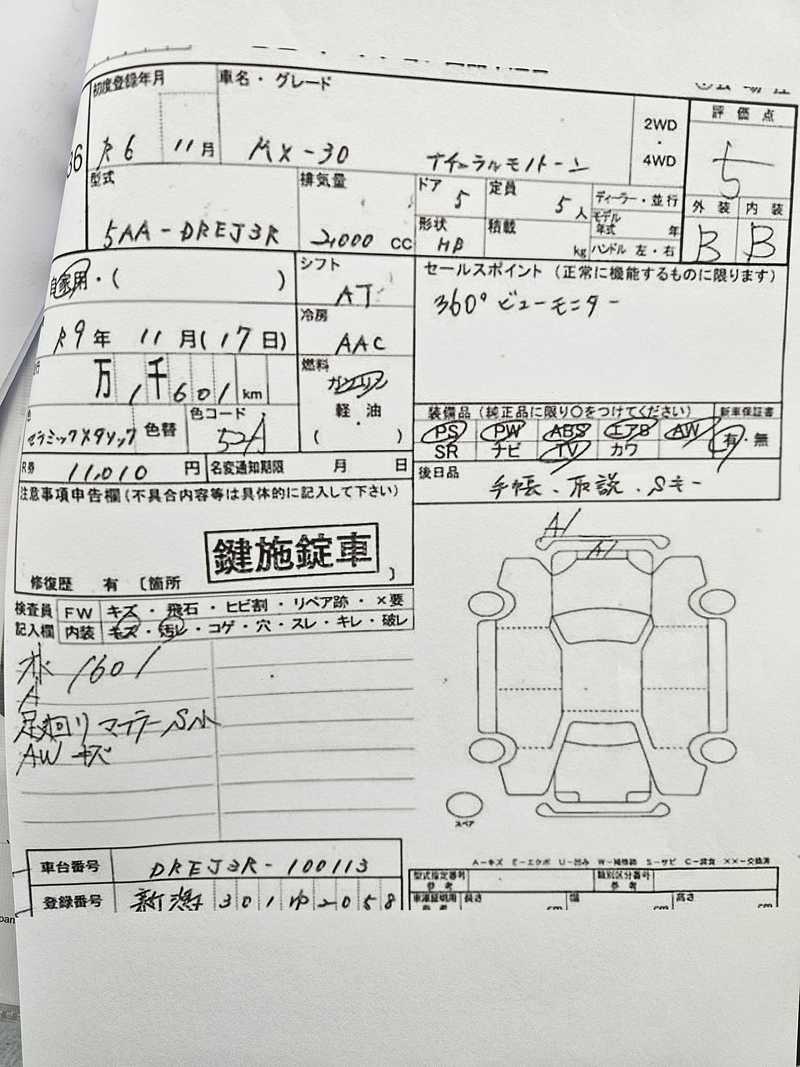 初度登録年月 車名・グレード
評価点
36 R6 11月 MX-30 ナチュラルモノトーン 2WD・4WD 5
型式 排気量 ドア 5 定員 5人 ディーラー・並行
外装 内装
5AA-DREJ3R 2,000 CC 形状 HB 積載 kg モデル年式 年 ハンドル 左・右
B B
自家用・( ) シフト AT セールスポイント (正常に機能するものに限ります)
360°ビューモニター
R9年 11月(17日) 冷房 AAC
万1千601km 燃料 ガソリン・軽油 ( )
セラミックメタリック 色替 色コード 52A
装備品 (純正品に限り○をつけてください) 新車保証書
PS PW ABS エアB AW 有・無
SR ナビ TV カワ
R券 11,010円 名変通知期限 月 日
後日品 手帳、取説、Sキー
注意事項申告欄 (不具合内容等は具体的に記入して下さい)
鍵施錠車
修復歴 有 〔箇所 〕
検査員記入欄 FW キズ・飛石・ヒビ割・リペア跡・×要
内装 キズ・汚レ・コゲ・穴・スレ・キレ・破レ
1601
足回り マフラーS小
AWキズ
A1
A1
スペア
A−キズ E−エクボ U−凹み W−補修跡 S−サビ C−腐食 ××−交換済
車台番号 DREJ3R-100113
型式指定番号 参考 類別区分番号 参考
登録番号 新潟 301 ゆ 2058
車庫証明用 参考 長さ cm 幅 cm 高さ cm